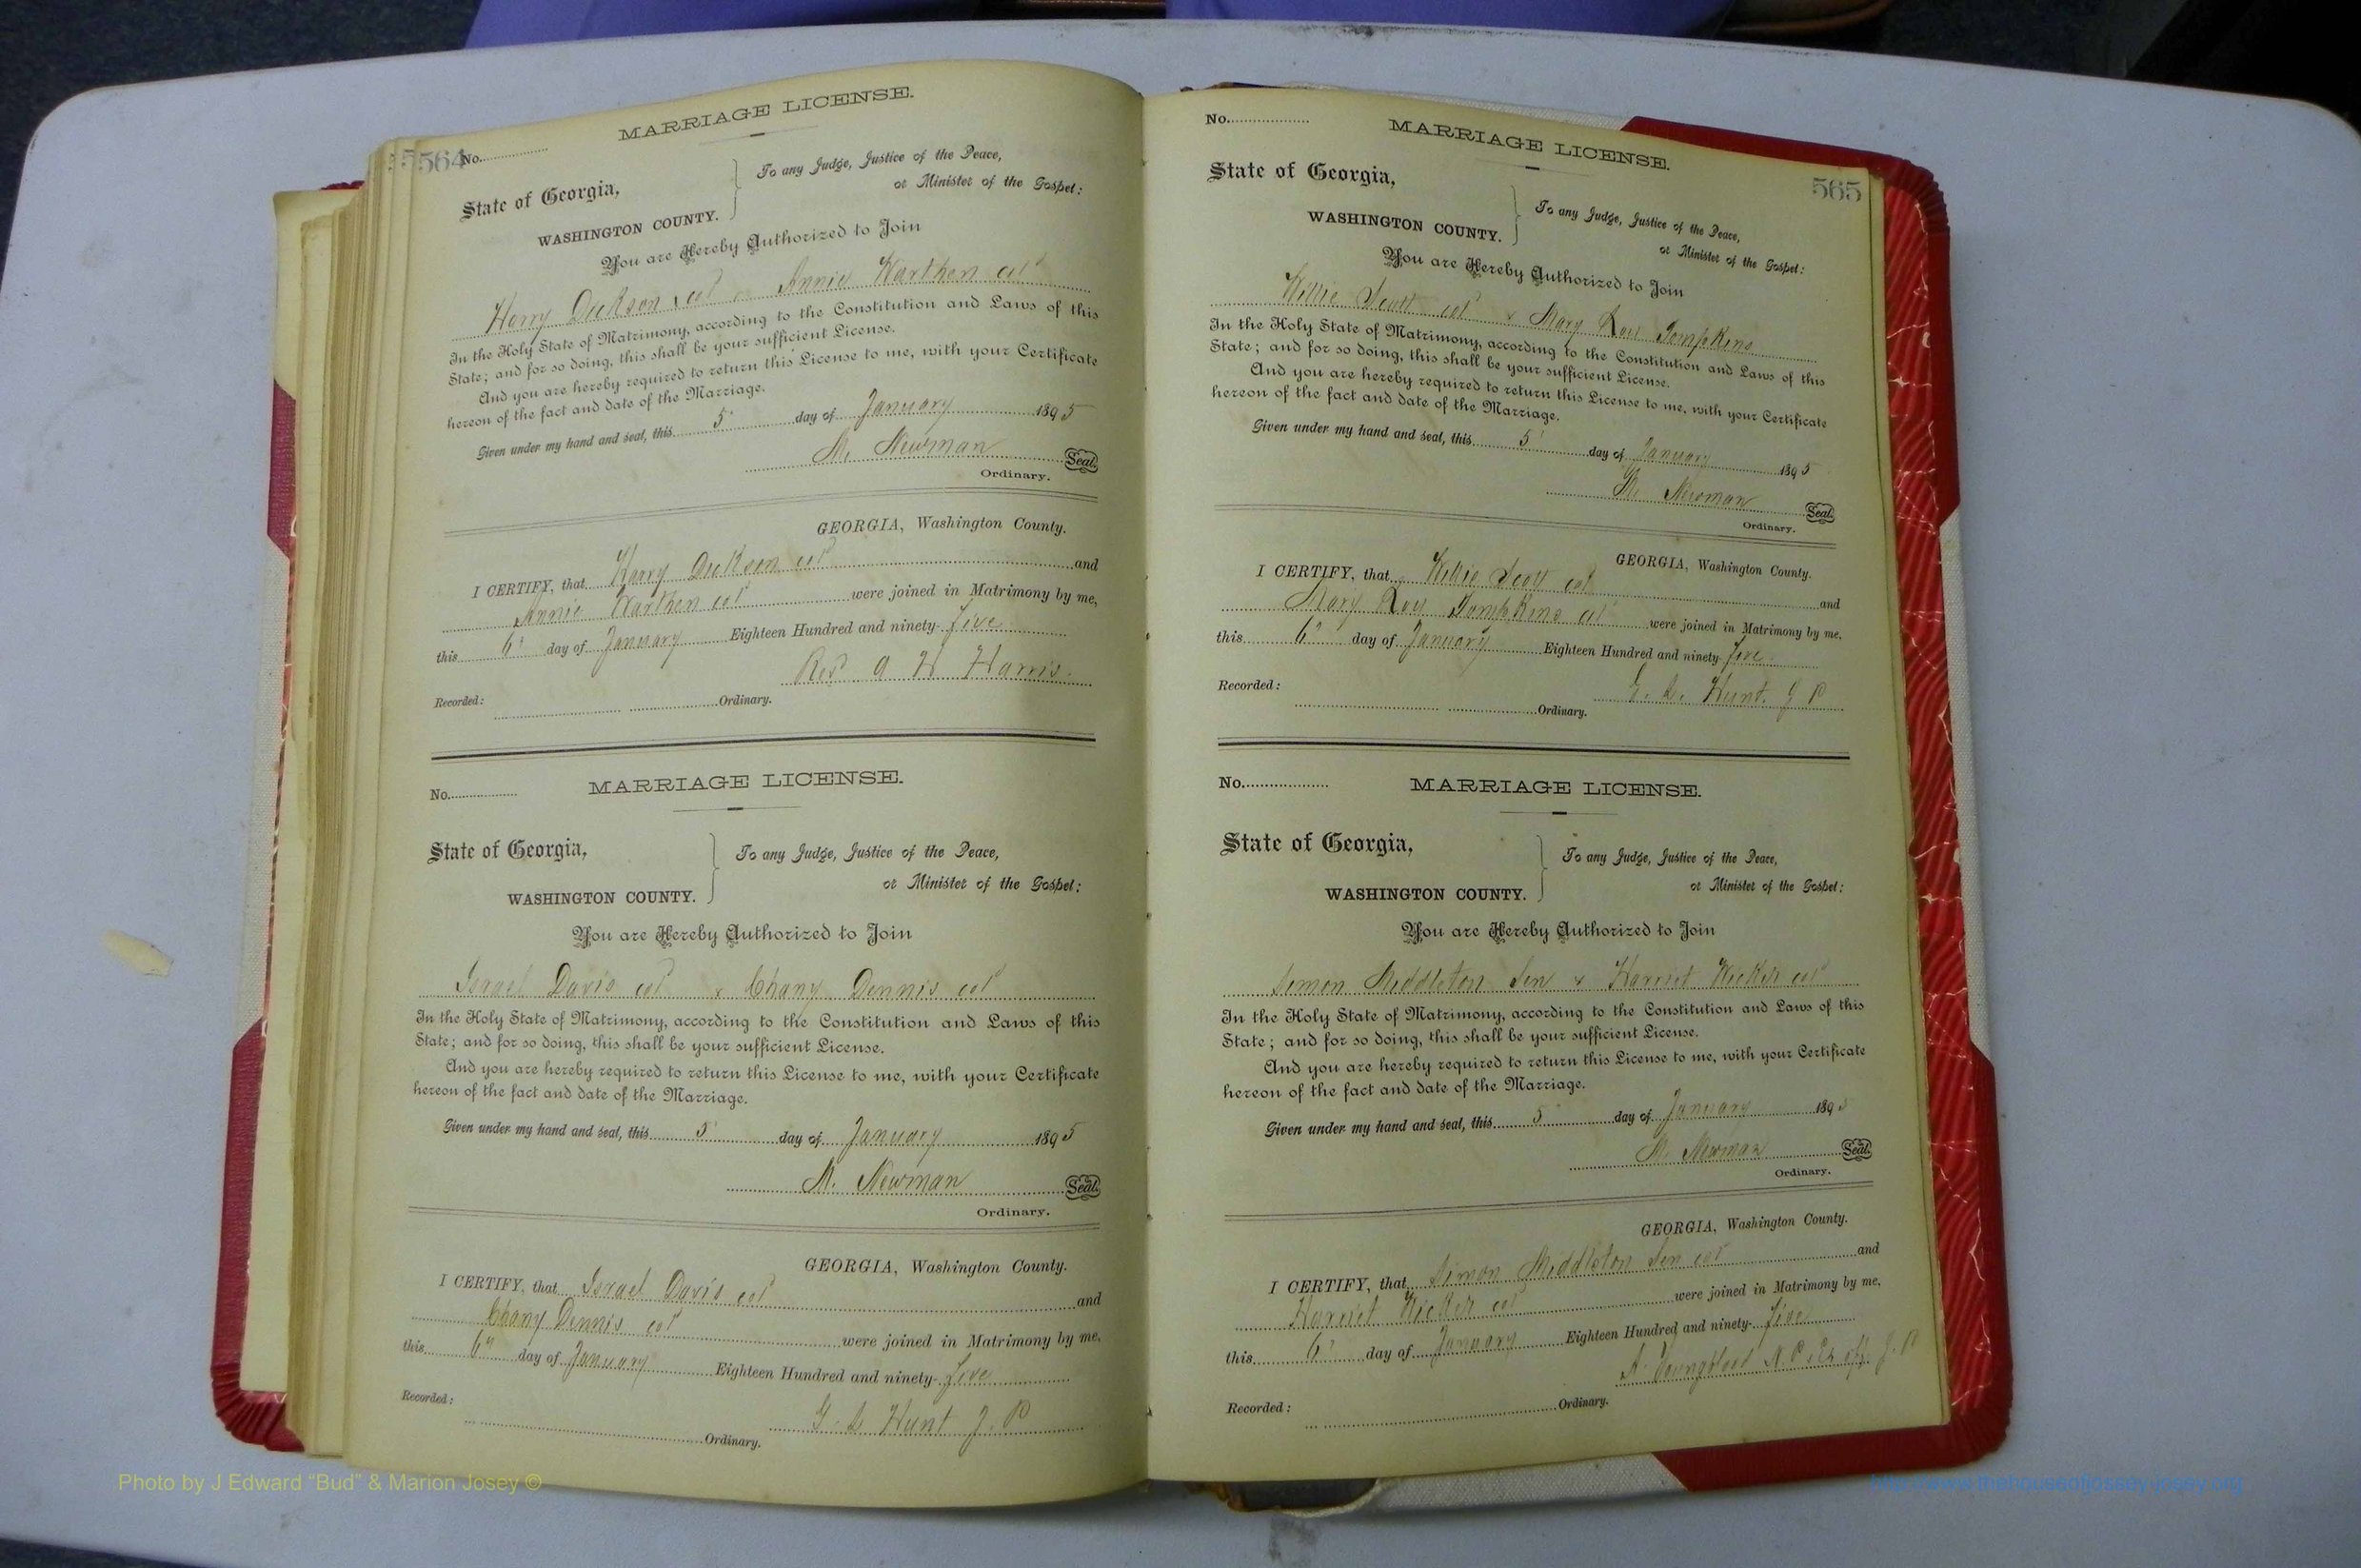 564
No.
MARRIAGE LICENSE.
State of Georgia,
WASHINGTON COUNTY.
To any Judge, Justice of the Peace,
or Minister of the Gospel:
You are Hereby Authorized to Join
Harry Dickson col & Annie Warthen col
In the Holy State of Matrimony, according to the Constitution and Laws of this
State; and for so doing, this shall be your sufficient License.
And you are hereby required to return this License to me, with your Certificate
hereon of the fact and date of the Marriage.
Given under my hand and seal, this 5 day of January 1895
M. Newman Seal.
Ordinary.
GEORGIA, Washington County.
I CERTIFY, that Harry Dickson col and
Annie Warthen col were joined in Matrimony by me,
this 6 day of January Eighteen Hundred and ninety-five
Rev A W Harris
Recorded: Ordinary.
No.
MARRIAGE LICENSE.
State of Georgia,
WASHINGTON COUNTY.
To any Judge, Justice of the Peace,
or Minister of the Gospel:
You are Hereby Authorized to Join
Israel Davis col & Chany Dennis col
In the Holy State of Matrimony, according to the Constitution and Laws of this
State; and for so doing, this shall be your sufficient License.
And you are hereby required to return this License to me, with your Certificate
hereon of the fact and date of the Marriage.
Given under my hand and seal, this 5 day of January 1895
M. Newman Seal.
Ordinary.
GEORGIA, Washington County.
I CERTIFY, that Israel Davis col and
Chany Dennis col were joined in Matrimony by me,
this 6 day of January Eighteen Hundred and ninety-five
Hunt J. P
Recorded: Ordinary.
No.
MARRIAGE LICENSE.
565
State of Georgia,
WASHINGTON COUNTY.
To any Judge, Justice of the Peace,
or Minister of the Gospel:
You are Hereby Authorized to Join
Willie Scott col & Mary Lou Tompkins
In the Holy State of Matrimony, according to the Constitution and Laws of this
State; and for so doing, this shall be your sufficient License.
And you are hereby required to return this License to me, with your Certificate
hereon of the fact and date of the Marriage.
Given under my hand and seal, this 5 day of January 1895
M. Newman Seal.
Ordinary.
GEORGIA, Washington County.
I CERTIFY, that Willie Scott col and
Mary Lou Tompkins col were joined in Matrimony by me,
this 6 day of January Eighteen Hundred and ninety-five
Hunt. J P
Recorded: Ordinary.
No.
MARRIAGE LICENSE.
State of Georgia,
WASHINGTON COUNTY.
To any Judge, Justice of the Peace,
or Minister of the Gospel:
You are Hereby Authorized to Join
Simon Middleton Sen & Harriet Wicker col
In the Holy State of Matrimony, according to the Constitution and Laws of this
State; and for so doing, this shall be your sufficient License.
And you are hereby required to return this License to me, with your Certificate
hereon of the fact and date of the Marriage.
Given under my hand and seal, this 5 day of January 1895
M. Newman Seal.
Ordinary.
GEORGIA, Washington County.
I CERTIFY, that Simon Middleton Sen col and
Harriet Wicker col were joined in Matrimony by me,
this 6 day of January Eighteen Hundred and ninety-five
Youngblood N. P. & Ex off. J. P
Recorded: Ordinary.
Photo by J Edward “Bud” & Marion Josey ©
http://www.thehouseofjossey-josey.org